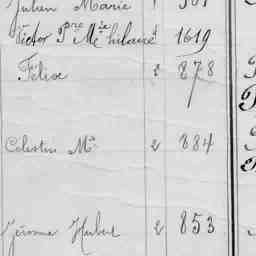 Julien Marie 1
Victor Pre Me hilaire 1 1619
Félix 2 878
Célestin Ma 2 884
Jérome Hubert 2 853